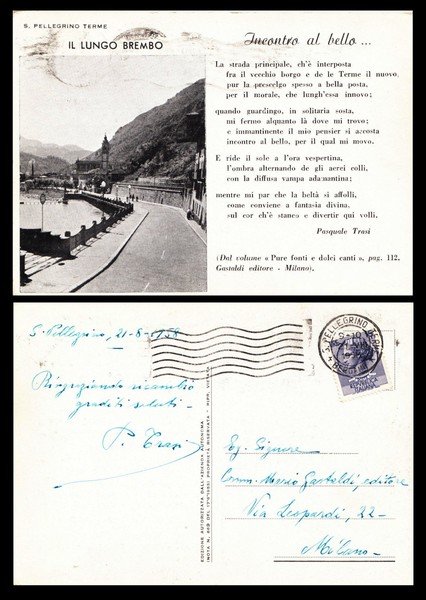 S. PELLEGRINO TERME
IL LUNGO BREMBO
Incontro al bello ...
La strada principale, ch'è interposta
fra il vecchio borgo e de le Terme il nuovo,
pur la prescelgo spesso a bella posta,
per il morale, che lungh'essa innovo;
quando guardingo, in solitaria sosta,
mi fermo alquanto là dove mi trovo;
e immantinente il mio pensier si accosta
incontro al bello, per il qual mi movo.
E ride il sole a l'ora vespertina,
l'ombra alternando de gli aerei colli,
con la diffusa vampa adamantina;
mentre mi par che la beltà si affolli,
come conviene a fantasia divina,
sul cor ch'è stanco e divertir qui volli.
Pasquale Trasi
(Dal volume « Pure fonti e dolci canti », pag. 112.
Gastaldi editore - Milano).
S. Pellegrino, 21-8-1958
Ringraziando ricambio
graditi saluti -
P. Trasi
EDIZIONE AUTORIZZATA DALL'AZIENDA AUTONOMA
PROPRIETÀ RISERVATA - RIPR. VIETATA
S. PELLEGRINO TERME
Eg. Signore
Comm. Mario Gastaldi, editore
Via Leopardi, 22-
Milano-